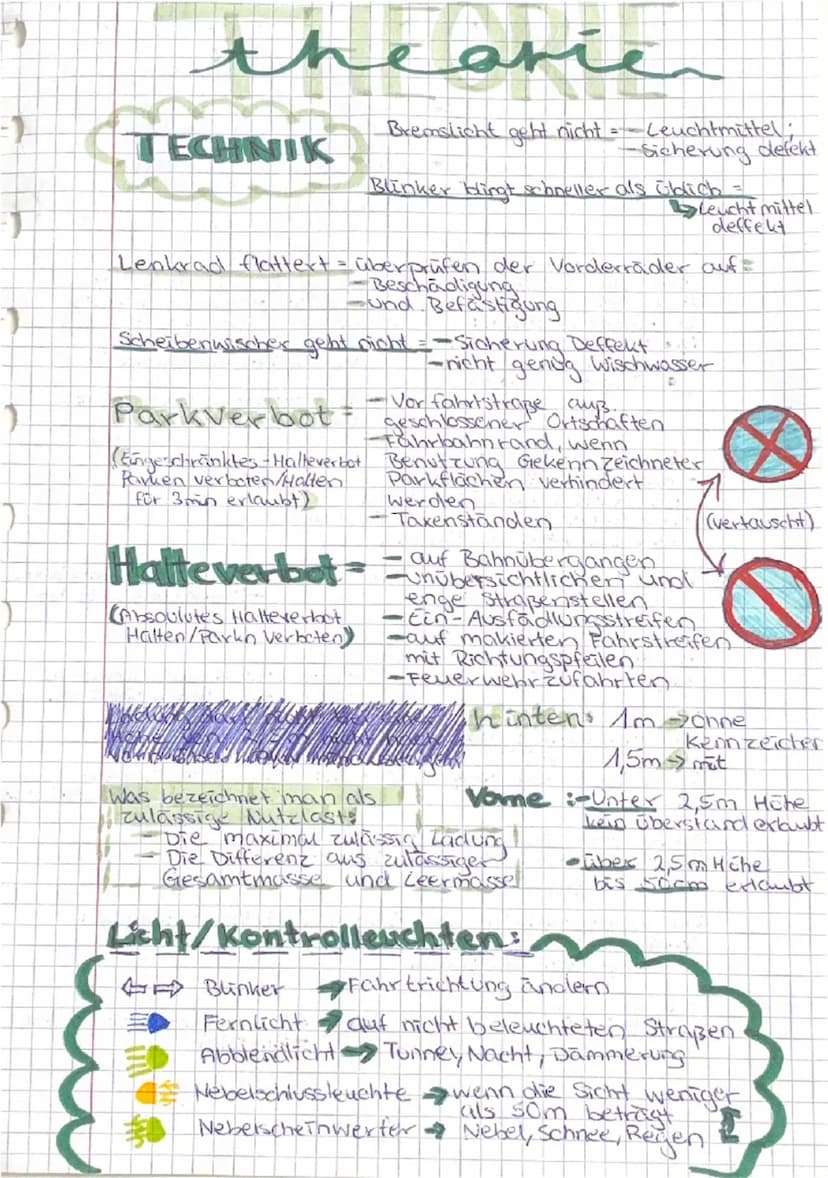 THEORIE
theorie
TECHNIK
Bremslicht geht nicht = - Leuchtmittel;
- Sicherung defekt
Blinker blingt schneller als üblich =
↳ Leuchtmittel
deffekt
Lenkrad flattert = überprüfen der Vorderräder auf:
- Beschädigung
- und Befästigung
Scheibenwischer geht nicht = - Sicherung Deffekt
- nicht genug Wischwasser
Parkverbot =
(Eingeschränktes-Halteverbot
Parken verboten/Halten
für 3min erlaubt)
- Vorfahrtstraße auß.
geschlossener Ortschaften
- Fahrbahnrand, wenn
Benutzung Gekennzeichneter
Parkflächen verhindert
werden
- Taxenständen
(vertauscht)
Halteverbot =
(Absoulutes Halteverbot
Halten/Parkn Verboten)
- auf Bahnübergangen
- unübersichtlichen und
enge Straßenstellen
- Ein-Ausfädlungsstreifen
- auf makierten Fahrstreifen
mit Richtungspfeilen
- Feuerwehrzufahrten
hinten: 1m → ohne
Kennzeichen
1,5m → mit
Was bezeichnet man als
zulässige Nutzlast:
- Die maximal zulässig Ladung
- Die Differenz aus zulässiger
Gesamtmasse und Leermasse
Vorne :- Unter 2,5m Höhe
kein Überstand erlaubt
• über 2,5m Höhe
bis 50cm erlaubt
Licht/Kontrolleuchten:
⇦⇨ Blinker → Fahrtrichtung ändern
Fernlicht → auf nicht beleuchteten Straßen
Abblendlicht → Tunney, Nacht, Dämmerung
Nebelschlussleuchte → wenn die Sicht weniger
als 50m beträgt
Nebelscheinwerfer → Nebel, Schnee, Regen